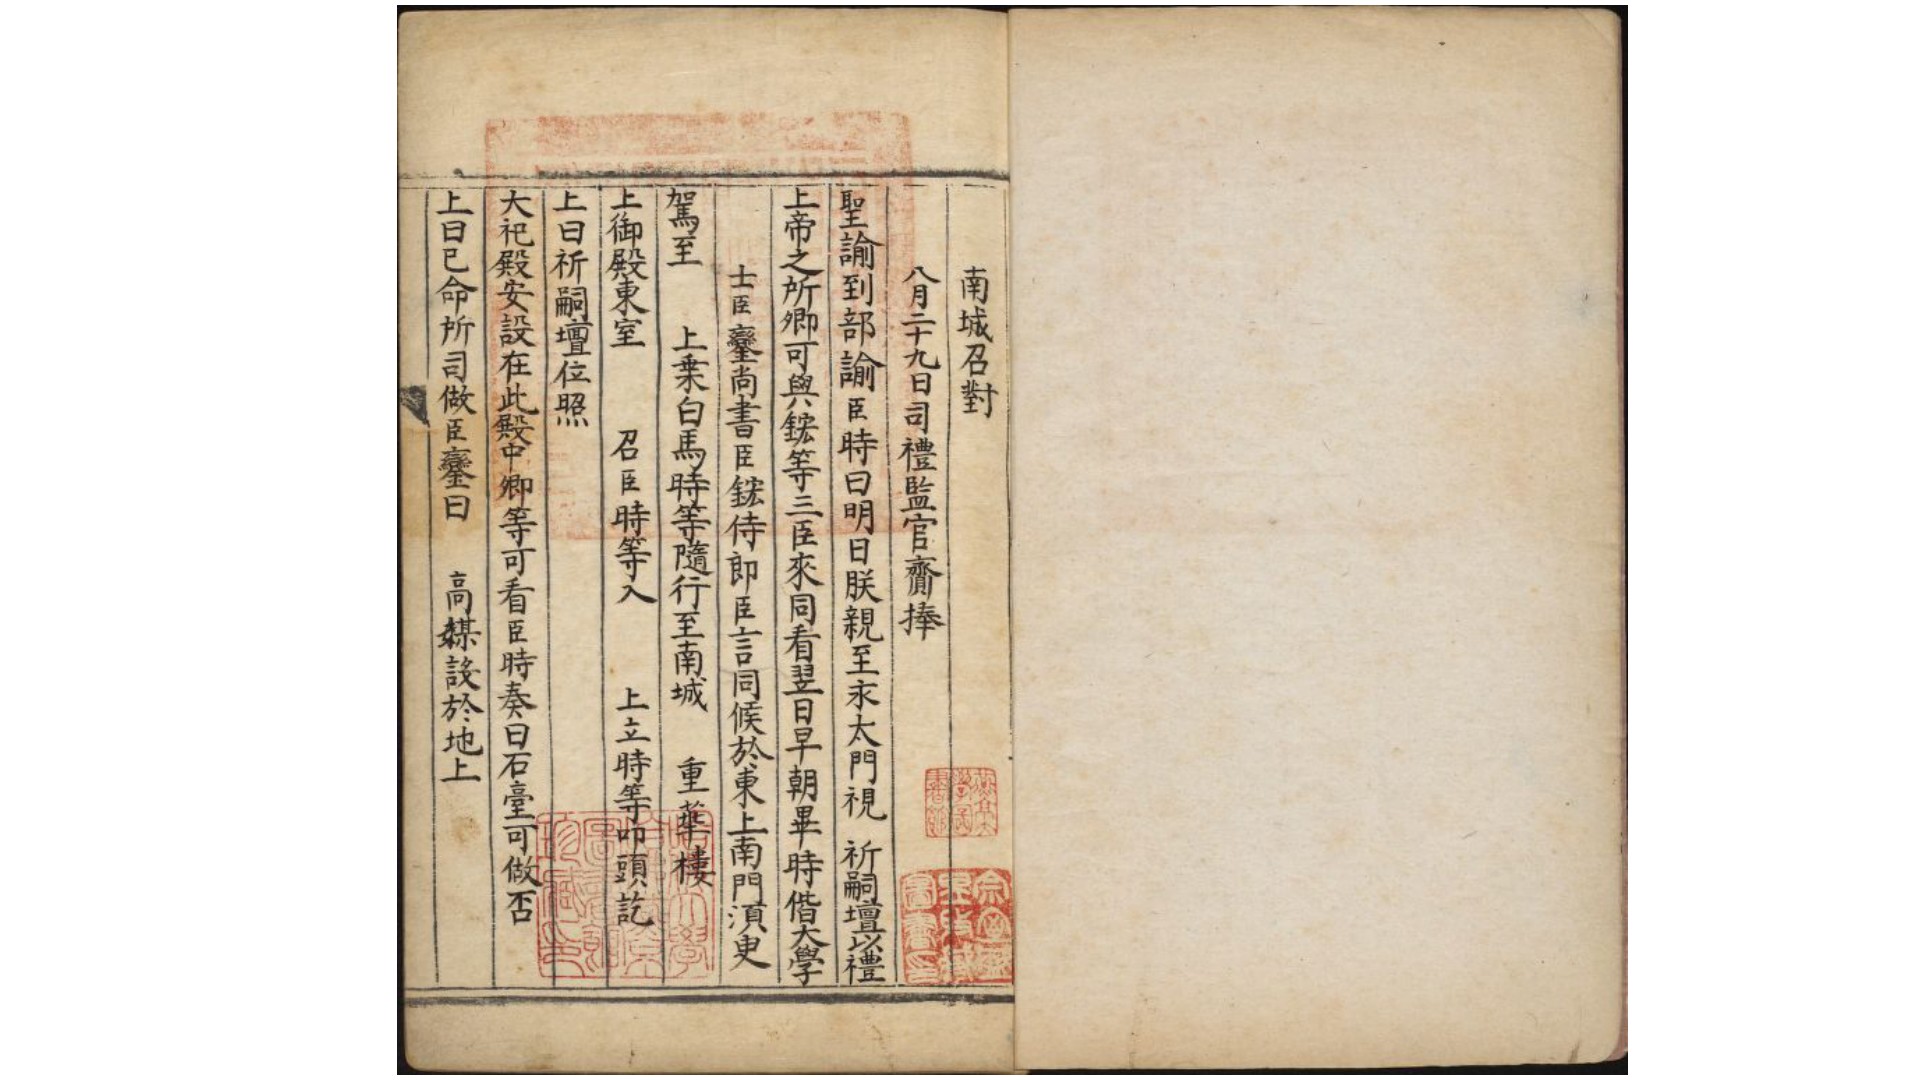 南城召對
八月二十九日司禮監官齎捧
聖諭到部諭臣時曰明日朕親至永太門視 祈嗣壇以禮
上帝之所卿可與鋐等三臣來同看翌日早朝畢時偕大學
士臣鑾尚書臣鋐侍郎臣言同候於東上南門湏臾
駕至 上乗白馬時等隨行至南城 重華樓
上御殿東室 召臣時等入 上立時等叩頭訖
上曰祈嗣壇位照
大祀殿安設在此殿中卿等可看臣時奏曰石臺可做否
上曰已命所司做臣鑾曰 高媒設於地上